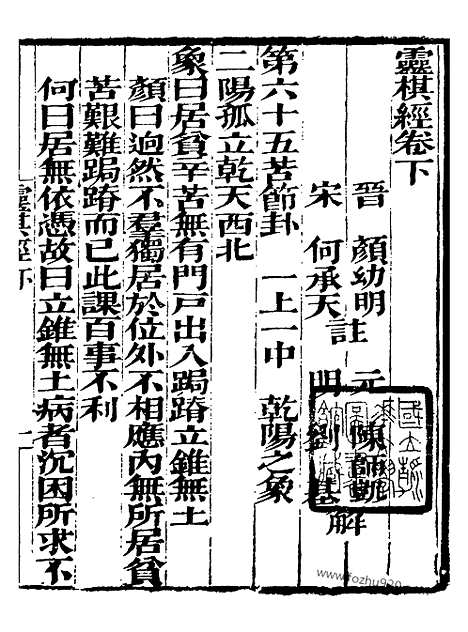 靈棋經卷下
晉 顏幼明 註 元 陳師凱
宋 何承天 明 劉基 解
第六十五苦節卦 一上一中 乾陽之象
二陽孤立乾天西北
象曰居貧辛苦無有門戸出入跼蹐立錐無土
顏曰迥然不羣獨居於位外不相應內無所居貧
苦艱難跼蹐而已此課百事不利
何曰居無依憑故曰立錐無土病者沉困所求不
靈棋經下 一
www.fozhu920.com